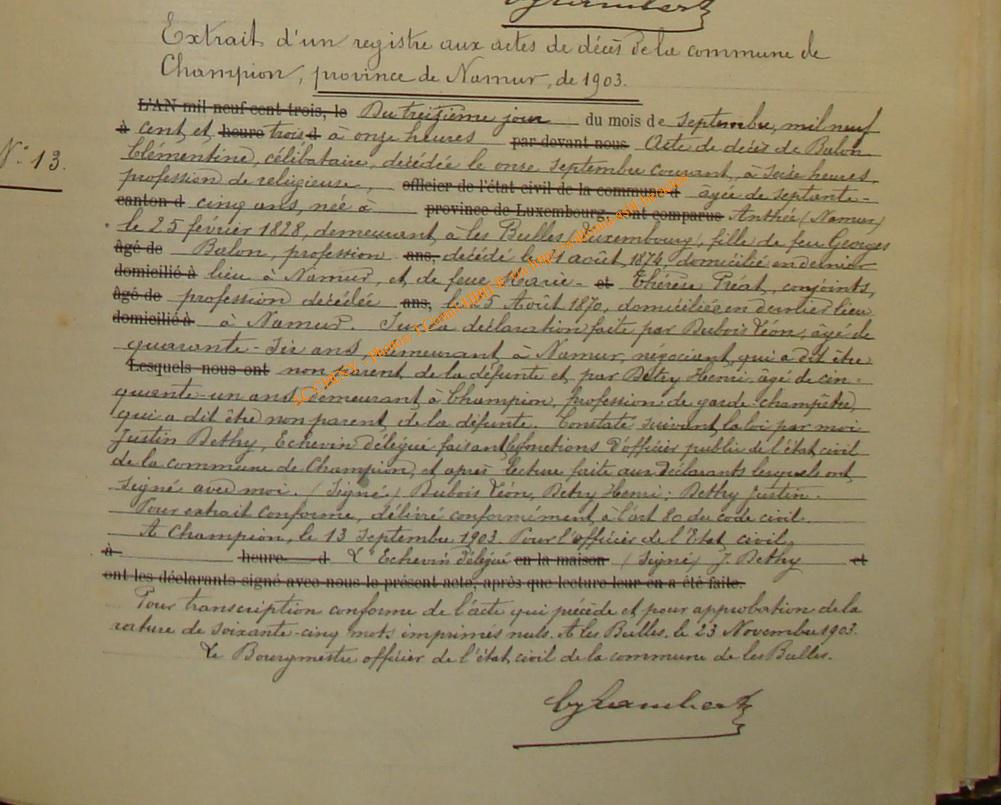 Extrait d'un registre aux actes de décès de la commune de
Champion, province de Namur, de 1903.
N° 13.
L'AN mil neuf cent trois, le Du treizième jour du mois de septembre, mil neuf
à cent, et heure trois d à onze heures par-devant nous Acte de décès de Balon
Clémentine, célibataire, décédée le onze septembre courant, à seize heures,
profession de religieuse, officier de l'état civil de la commune d âgée de septante-
canton d cinq ans, née à province de Luxembourg, ont comparus Anthée (Namur)
le 25 février 1828, demeurant à les Bulles (Luxembourg), fille de feu Georges
âgé de Balon, profession ans, décédé le août 1874 domicilié en dernier
domicilié à lieu à Namur, et de feue Marie- et Thérèse Préat, conjoints,
âgé de profession décédée ans, le 25 Août 1870, domiciliée en dernier lieu
domicilié à à Namur. Sur la déclaration faite par Dubois Léon, âgé de
quarante-six ans, demeurant à Namur, négociant, qui a dit être
Lesquels nous ont non parent de la défunte et par Betry Henri âgé de cin-
quante-un ans, demeurant à Champion, profession de garde-champêtre,
qui a dit être non parent de la défunte. Constaté suivant la loi par moi
Justin Bethy, Echevin délégué faisant les fonctions d'officier public de l'état civil
de la commune de Champion, et après lecture faite aux déclarants lesquels ont
signé avec moi. (Signé) Dubois Léon, Betry Henri; Bethy Justin.
Pour extrait conforme, délivré conformément à l'art 80 du code civil.
A Champion, le 13 Septembre 1903. Pour l'officier de l'Etat civil,
à heure d L'Echevin délégué en la maison (Signé) J. Bethy et
ont les déclarants signé avec nous le présent acte, après que lecture leur en a été faite.
Pour transcription conforme de l'acte qui précède et pour approbation de la
rature de soixante-cinq mots imprimés nuls. A les Bulles, le 23 Novembre 1903.
Le Bourgmestre officier de l'état civil de la commune de les Bulles.